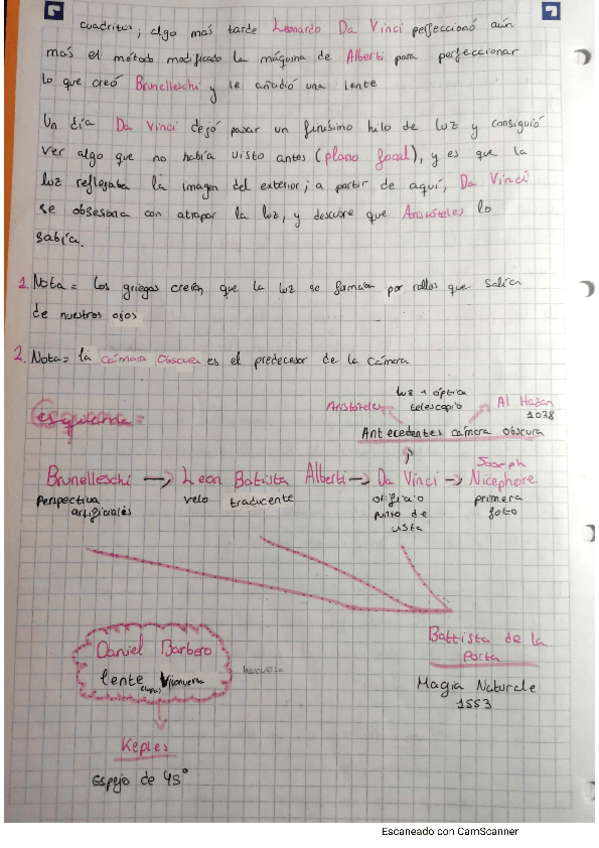 cuadritos; algo mas tarde Leonardo Da Vinci perfeccionó aún
mas el método modificado la máquina de Alberti para perfeccionar
lo que creó Brunelleschi y le añadió una lente
Un día Da Vinci dejó pasar un finísimo hilo de luz y consiguió
ver algo que no había visto antes (plano focal), y es que la
luz reflejaba la imagen del exterior; a partir de aquí, Da Vinci
se obsesiona con atrapar la luz, y descubre que Aristóteles lo
sabía.
1. Nota = Los griegos creían que la luz se formaba por rallos que salían
de nuestros ojos
2. Nota = la cámara Obscura es el predecesor de la cámara
luz + óptica
Aristóteles telescopio Al Hazan
1038
esquema =
Antecedentes cámera obscura
Joseph
Brunelleschi → Leon Battista Alberti → Da Vinci → Nicephore
Perspectiva velo traducente orificio primera
artificiales punto de foto
vista
Daniel Barbero
lente
Battista de la
Porta
Magia Naturale
1553
Kepler
Espejo de 45°
Escaneado con CamScanner